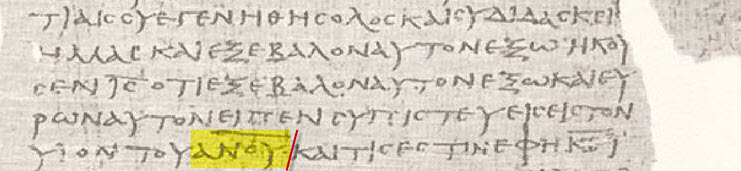 ΤΙΑΙCCΥΕΓΕΝΗΘΗCΟΛΟCΚΑΙCΥΔΙΔΑCΚΕΙC
ΗΜΑCΚΑΙΕΞΕΒΑΛΟΝΑΥΤΟΝΕΞΩΗΚΟΥ
CΕΝΙ̅C̅ΟΤΙΕΞΕΒΑΛΟΝΑΥΤΟΝΕΞΩΚΑΙΕΥ
ΡΩΝΑΥΤΟΝΕΙΠΕΝCΥΠΙCΤΕΥΕΙCΕΙCΤΟΝ
ΥΙΟΝΤΟΥΑ̅Ν̅Ο̅Υ̅·ΚΑΙΤΙCΕCΤΙΝΕΦΗΚ̅Ε̅